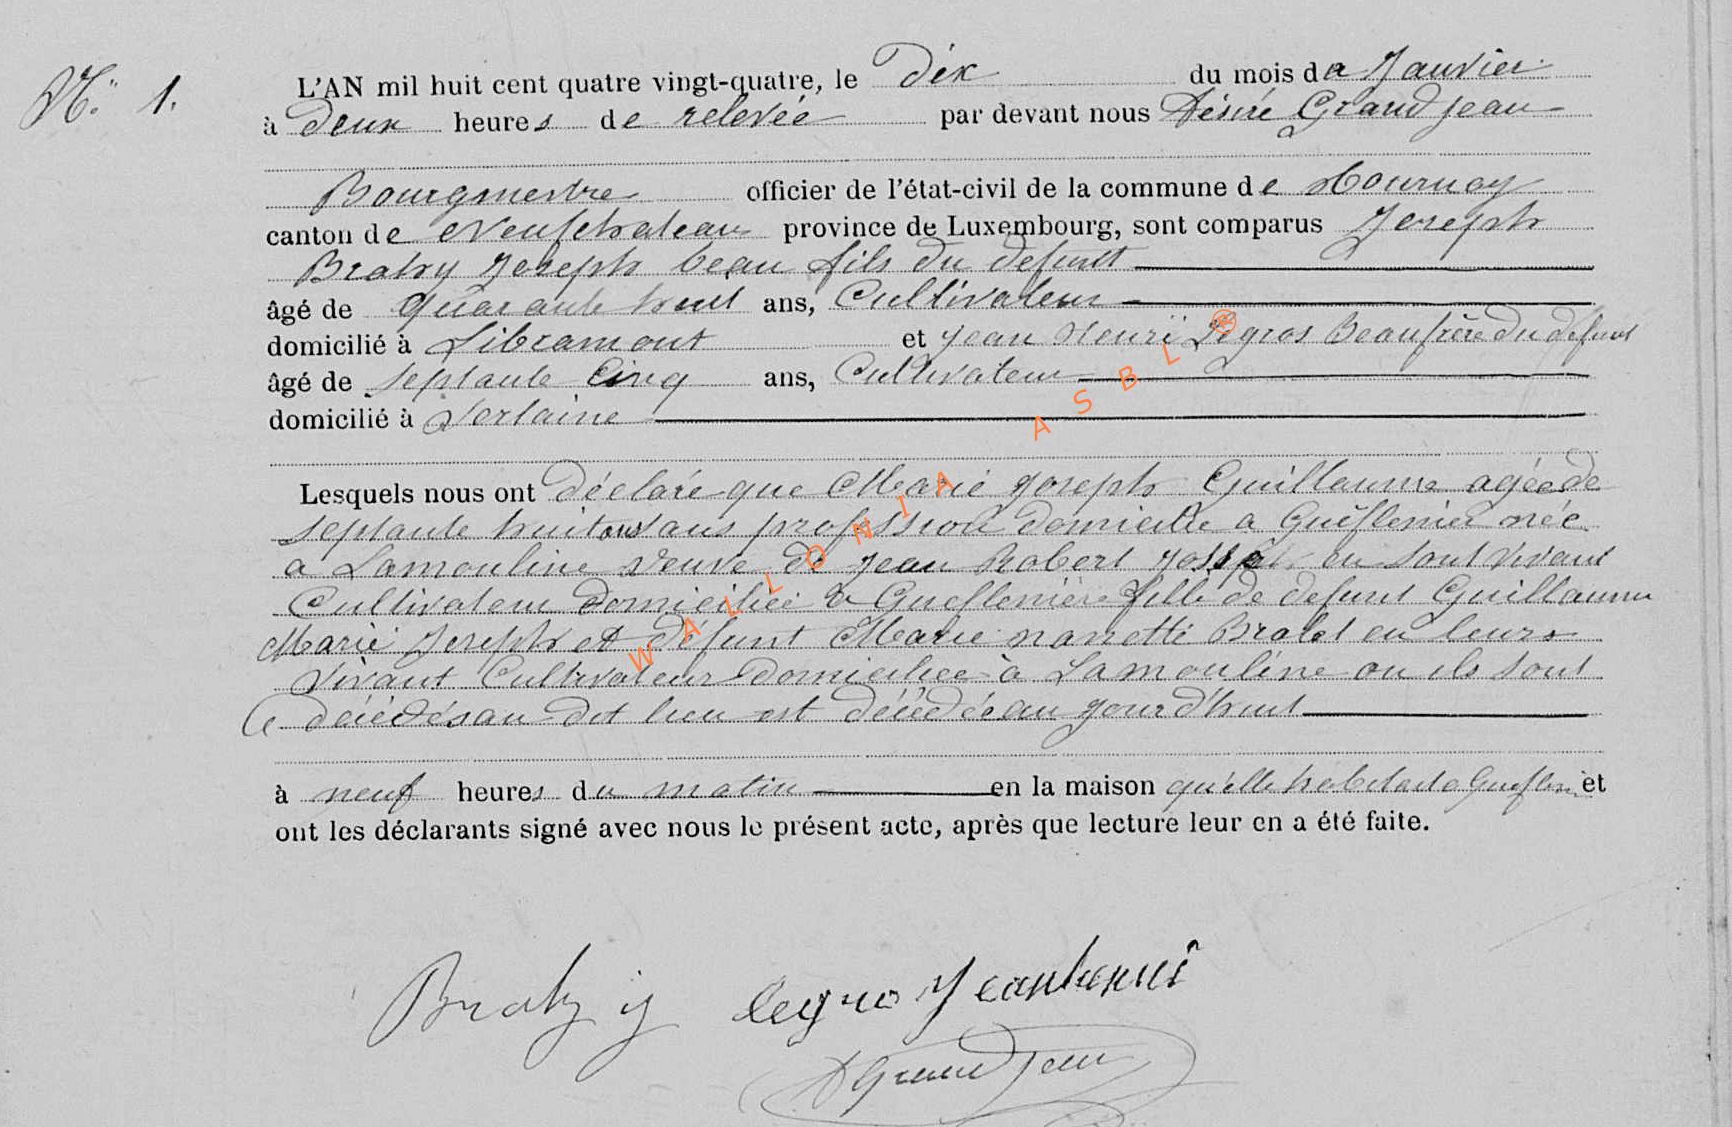 N° 1.
L'AN mil huit cent quatre vingt-quatre, le Dix du mois de Janvier
à deux heures de relevée par devant nous Désiré Grandjean
Bourgmestre officier de l'état-civil de la commune de Tournay
canton de Neufchateau province de Luxembourg, sont comparus Joseph
Brahy Joseph beau fils du defunt
âgé de quarante huit ans, Cultivateur
domicilié à Libramont et Jean Henri Legros Beaufrère du defunt
âgé de septante Cinq ans, Cultivateur
domicilié à Verlaine
Lesquels nous ont déclaré que Marie Joseph Guillaume agée de
septante huit ans sans profession domicilie a née
a Lamouline veuve de Jean Robert en sont vivant
Cultivateur domiciliée a fille de defunt Guillaume
Marie Joseph et défunt Marie en leurs
vivant Cultivateur Domiciliee à Lamouline ou ils sont
décédés au dit lieu est décédée au jourd'hui
à neuf heures du matin en la maison qu'elle habitait a et
ont les déclarants signé avec nous le présent acte, après que lecture leur en a été faite.
Brahy j legro Jeanhenri
D Grandjean
WALLONIA ASBL ®